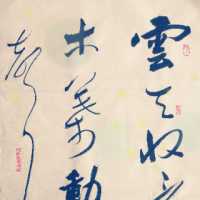 雲天收
木葉動
聲